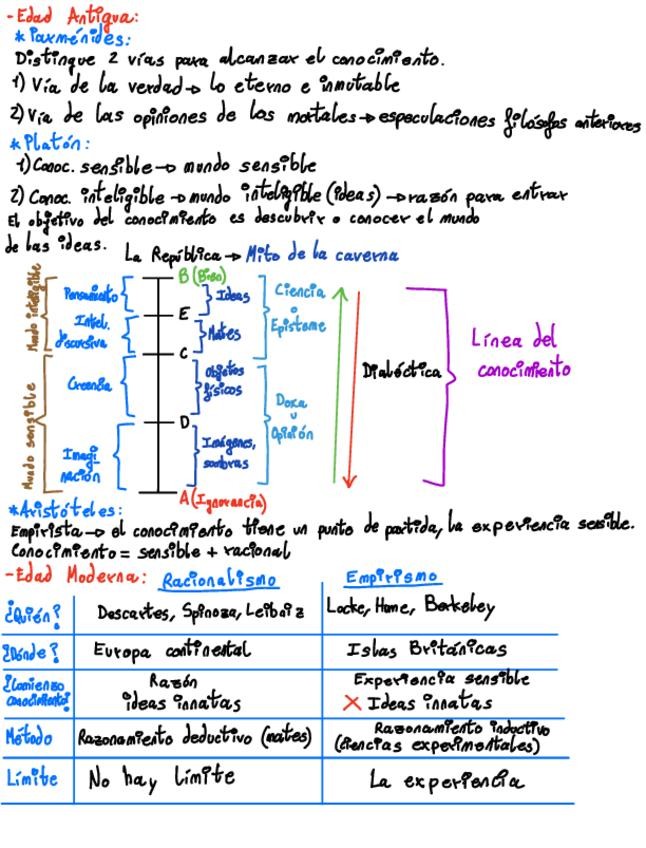 -Edad Antigua:
*Parménides:
Distingue 2 vías para alcanzar el conocimiento.
1) Vía de la verdad → lo eterno e inmutable
2) Vía de las opiniones de los mortales → especulaciones filósofos anteriores
*Platón:
1) Conoc. sensible → mundo sensible
2) Conoc. inteligible → mundo inteligible (ideas) → razón para entrar
El objetivo del conocimiento es descubrir o conocer el mundo
de las ideas.
La República → Mito de la caverna
Mundo inteligible
Mundo sensible
Pensamiento
Intel.
discursiva
Creencia
Imagi-
nación
B (Bien)
E
C
D
A (Ignorancia)
Ideas
Mates
Objetos
físicos
Imágenes,
sombras
Ciencia
o
Episteme
Doxa
u
Opinión
Dialéctica
Línea del
conocimiento
*Aristóteles:
Empirista → el conocimiento tiene un punto de partida, la experiencia sensible.
Conocimiento = sensible + racional
-Edad Moderna: Racionalismo Empirismo
¿Quién? Descartes, Spinoza, Leibniz Locke, Hume, Berkeley
¿Dónde? Europa continental Islas Británicas
¿Comienzo Razón Experiencia sensible
conocimiento? ideas innatas X Ideas innatas
Método Razonamiento deductivo (mates) Razonamiento inductivo
(ciencias experimentales)
Límite No hay límite La experiencia